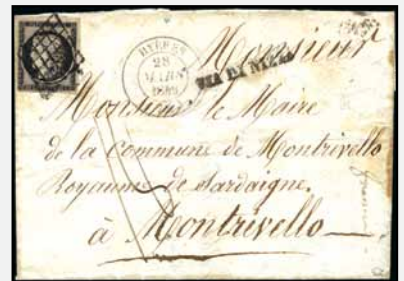 Monsieur
HYÈRES
28
MARS
1849
VIA DI NIZZA
Monsieur le Maire
de la commune de Montrivello
Royaume de Sardaigne.
à Montrivello